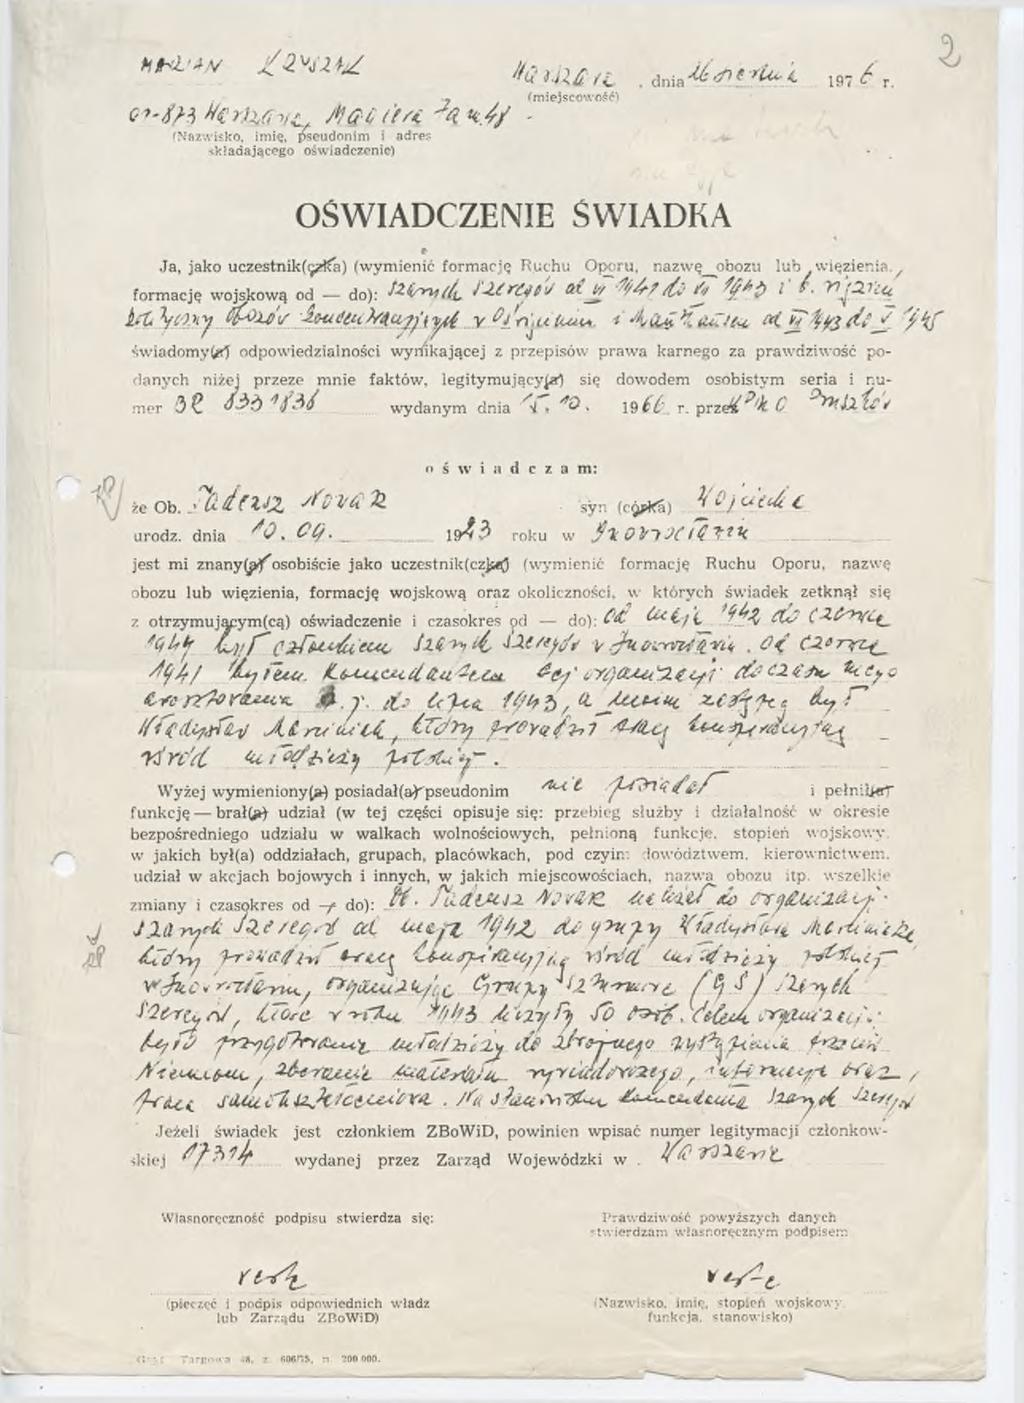 2
MARIAN KRYSZAK Warszawa, dnia 26 sierpnia 1976 r.
(miejscowość)
01-873 Warszawa, Magiera 7a m. 48
(Nazwisko, imię, pseudonim i adres
składającego oświadczenie)
OŚWIADCZENIE ŚWIADKA
Ja, jako uczestnik(czka) (wymienić formację Ruchu Oporu, nazwę obozu lub więzienia,
formację wojskową od — do): Szarych Szeregów od VI 1941 do VI 1943 i b. więzień
polityczny obozów koncentracyjnych w Oświęcimiu i Mauthausen od VI 1943 do V 1945
świadomy(a) odpowiedzialności wynikającej z przepisów prawa karnego za prawdziwość po-
danych niżej przeze mnie faktów, legitymujący(a) się dowodem osobistym seria i nu-
mer 8331836 wydanym dnia 15. 10. 1966 r. przez
oświadczam:
że Ob. Tadeusz Nowak syn (córka) Wojciecha
urodz. dnia 10. 09. 1923 roku w Inowrocławiu
jest mi znany(a) osobiście jako uczestnik(czka) (wymienić formację Ruchu Oporu, nazwę
obozu lub więzienia, formację wojskową oraz okoliczności, w których świadek zetknął się
z otrzymującym(cą) oświadczenie i czasokres od — do): od maja 1942 do czerwca
1944 był członkiem Szarych Szeregów w Inowrocławiu. Od czerwca
1941 byłem komendantem tej organizacji do czasu mego
aresztowania t. j. do lipca 1943, a moim zastępcą był
Władysław Marciniak, który prowadził pracę konspiracyjną
wśród młodzieży polskiej.
Wyżej wymieniony(a) posiadał(a) pseudonim nie posiadał i pełnił(a)
funkcję — brał(a) udział (w tej części opisuje się: przebieg służby i działalność w okresie
bezpośredniego udziału w walkach wolnościowych, pełnioną funkcję, stopień wojskowy,
w jakich był(a) oddziałach, grupach, placówkach, pod czyim dowództwem, kierownictwem,
udział w akcjach bojowych i innych, w jakich miejscowościach, nazwa obozu itp. wszelkie
zmiany i czasokres od — do): Ob. Tadeusz Nowak należał do organizacji
Szarych Szeregów od maja 1942 do grupy Władysława Marciniaka,
który prowadził pracę konspiracyjną wśród młodzieży polskiej
w Inowrocławiu, organizując Grupy Szturmowe (GS) Szarych
Szeregów, które w roku 1943 liczyły 50 osób. Celem organizacji
było przygotowanie młodzieży do zbrojnego wystąpienia przeciw
Niemcom, zbieranie materiału wywiadowczego, informacje oraz
praca samokształceniowa. Na stanowisku komendanta Szarych Szeregów
Jeżeli świadek jest członkiem ZBoWiD, powinien wpisać numer legitymacji członkow-
skiej 17314 wydanej przez Zarząd Wojewódzki w Warszawie
Własnoręczność podpisu stwierdza się: Prawdziwość powyższych danych
stwierdzam własnoręcznym podpisem
verte verte
(pieczęć i podpis odpowiednich władz (Nazwisko, imię, stopień wojskowy,
lub Zarządu ZBoWiD) funkcja, stanowisko)
Targowa 48, z. 606/75, n. 200 000.